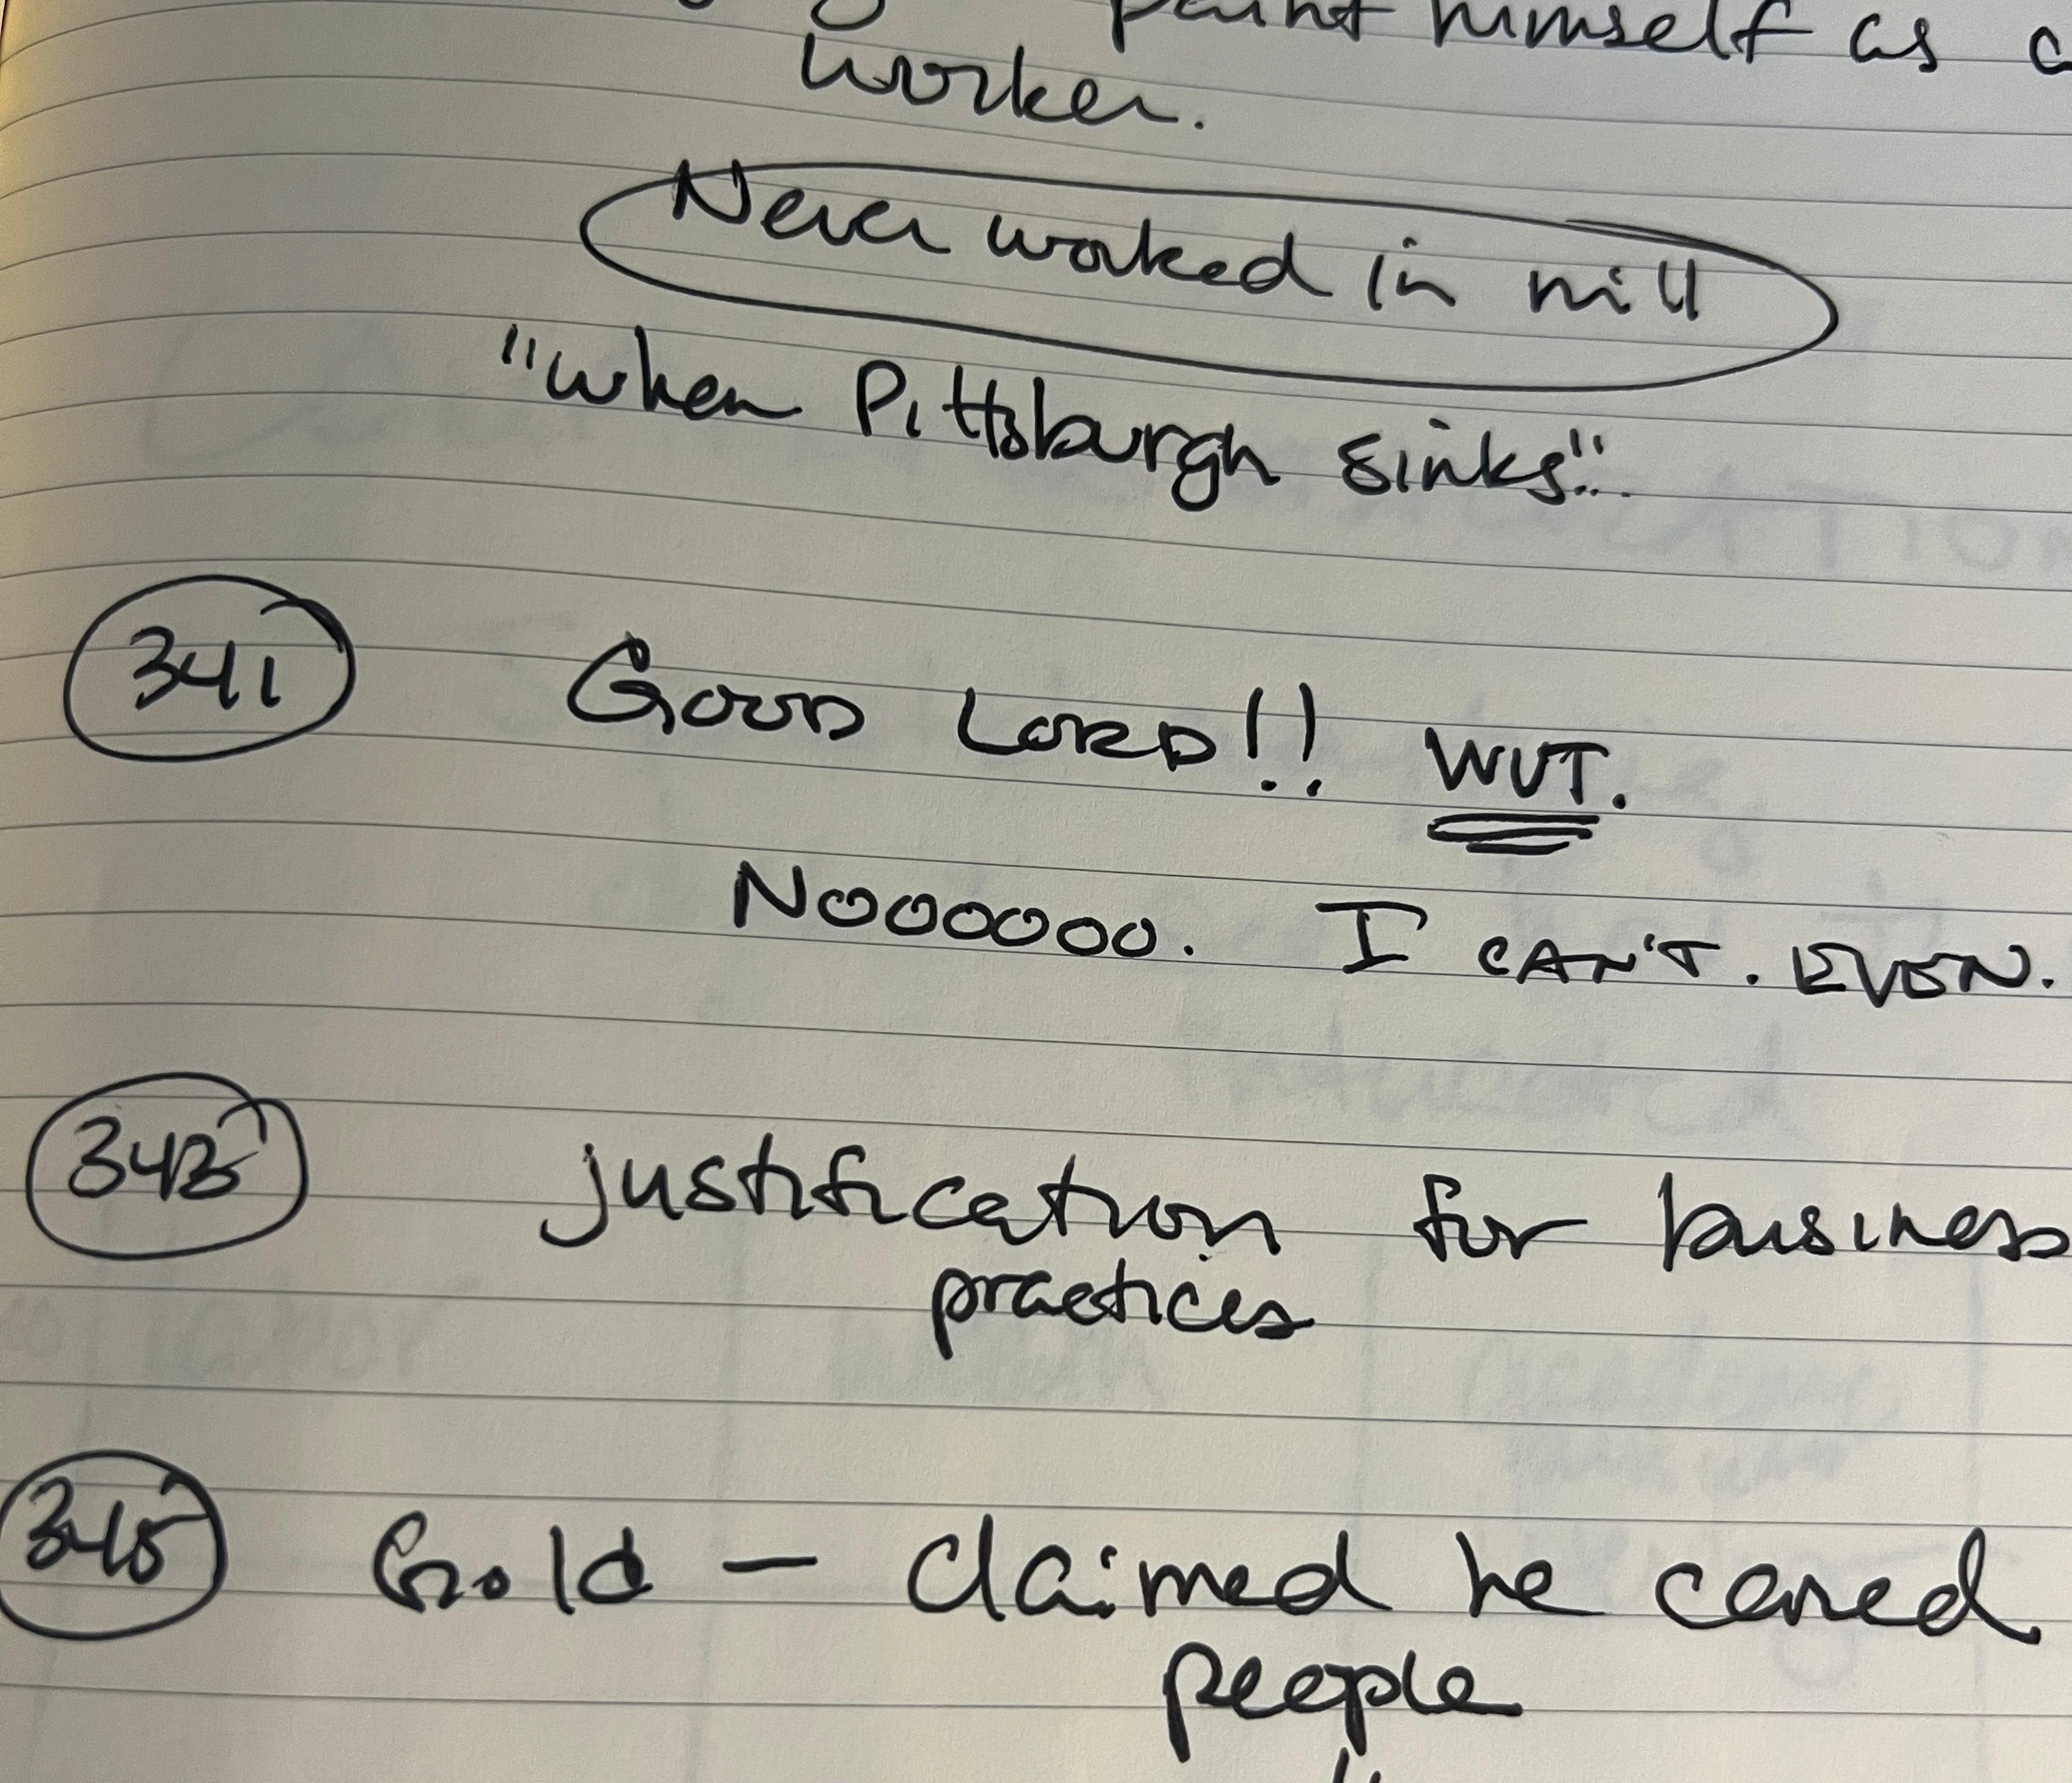 paint himself as a
worker.
Never worked in mill
"when Pittsburgh sinks"...
341 Good Lord!! WUT.
Nooooooo. I CAN'T. EVEN.
343 justification for business
practices
345 Gold — claimed he cared
people